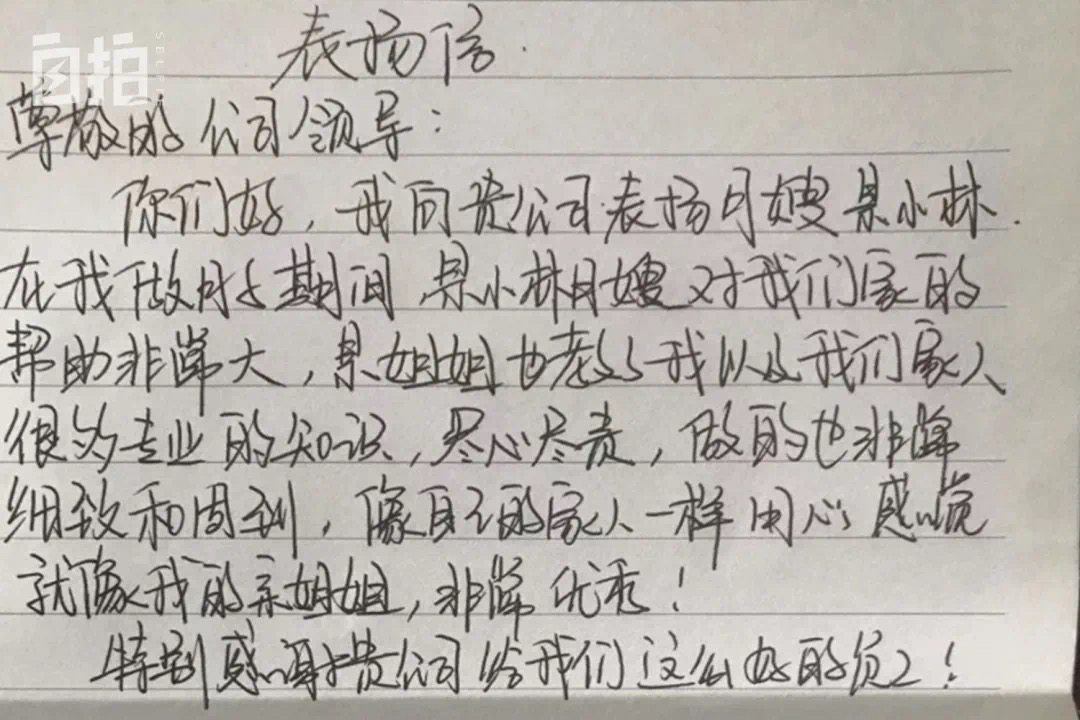 自拍
SELF
表扬信.
尊敬的公司领导:
你们好,我向贵公司表扬月嫂景小林.
在我做月子期间,景小林月嫂对我们家的
帮助非常大,景姐姐也教了我以及我们家人
很多专业的知识,尽心尽责,做的也非常
细致和周到,像自己的家人一样用心感觉
就像我的亲姐姐,非常优秀!
特别感谢贵公司给我们这么好的员工!